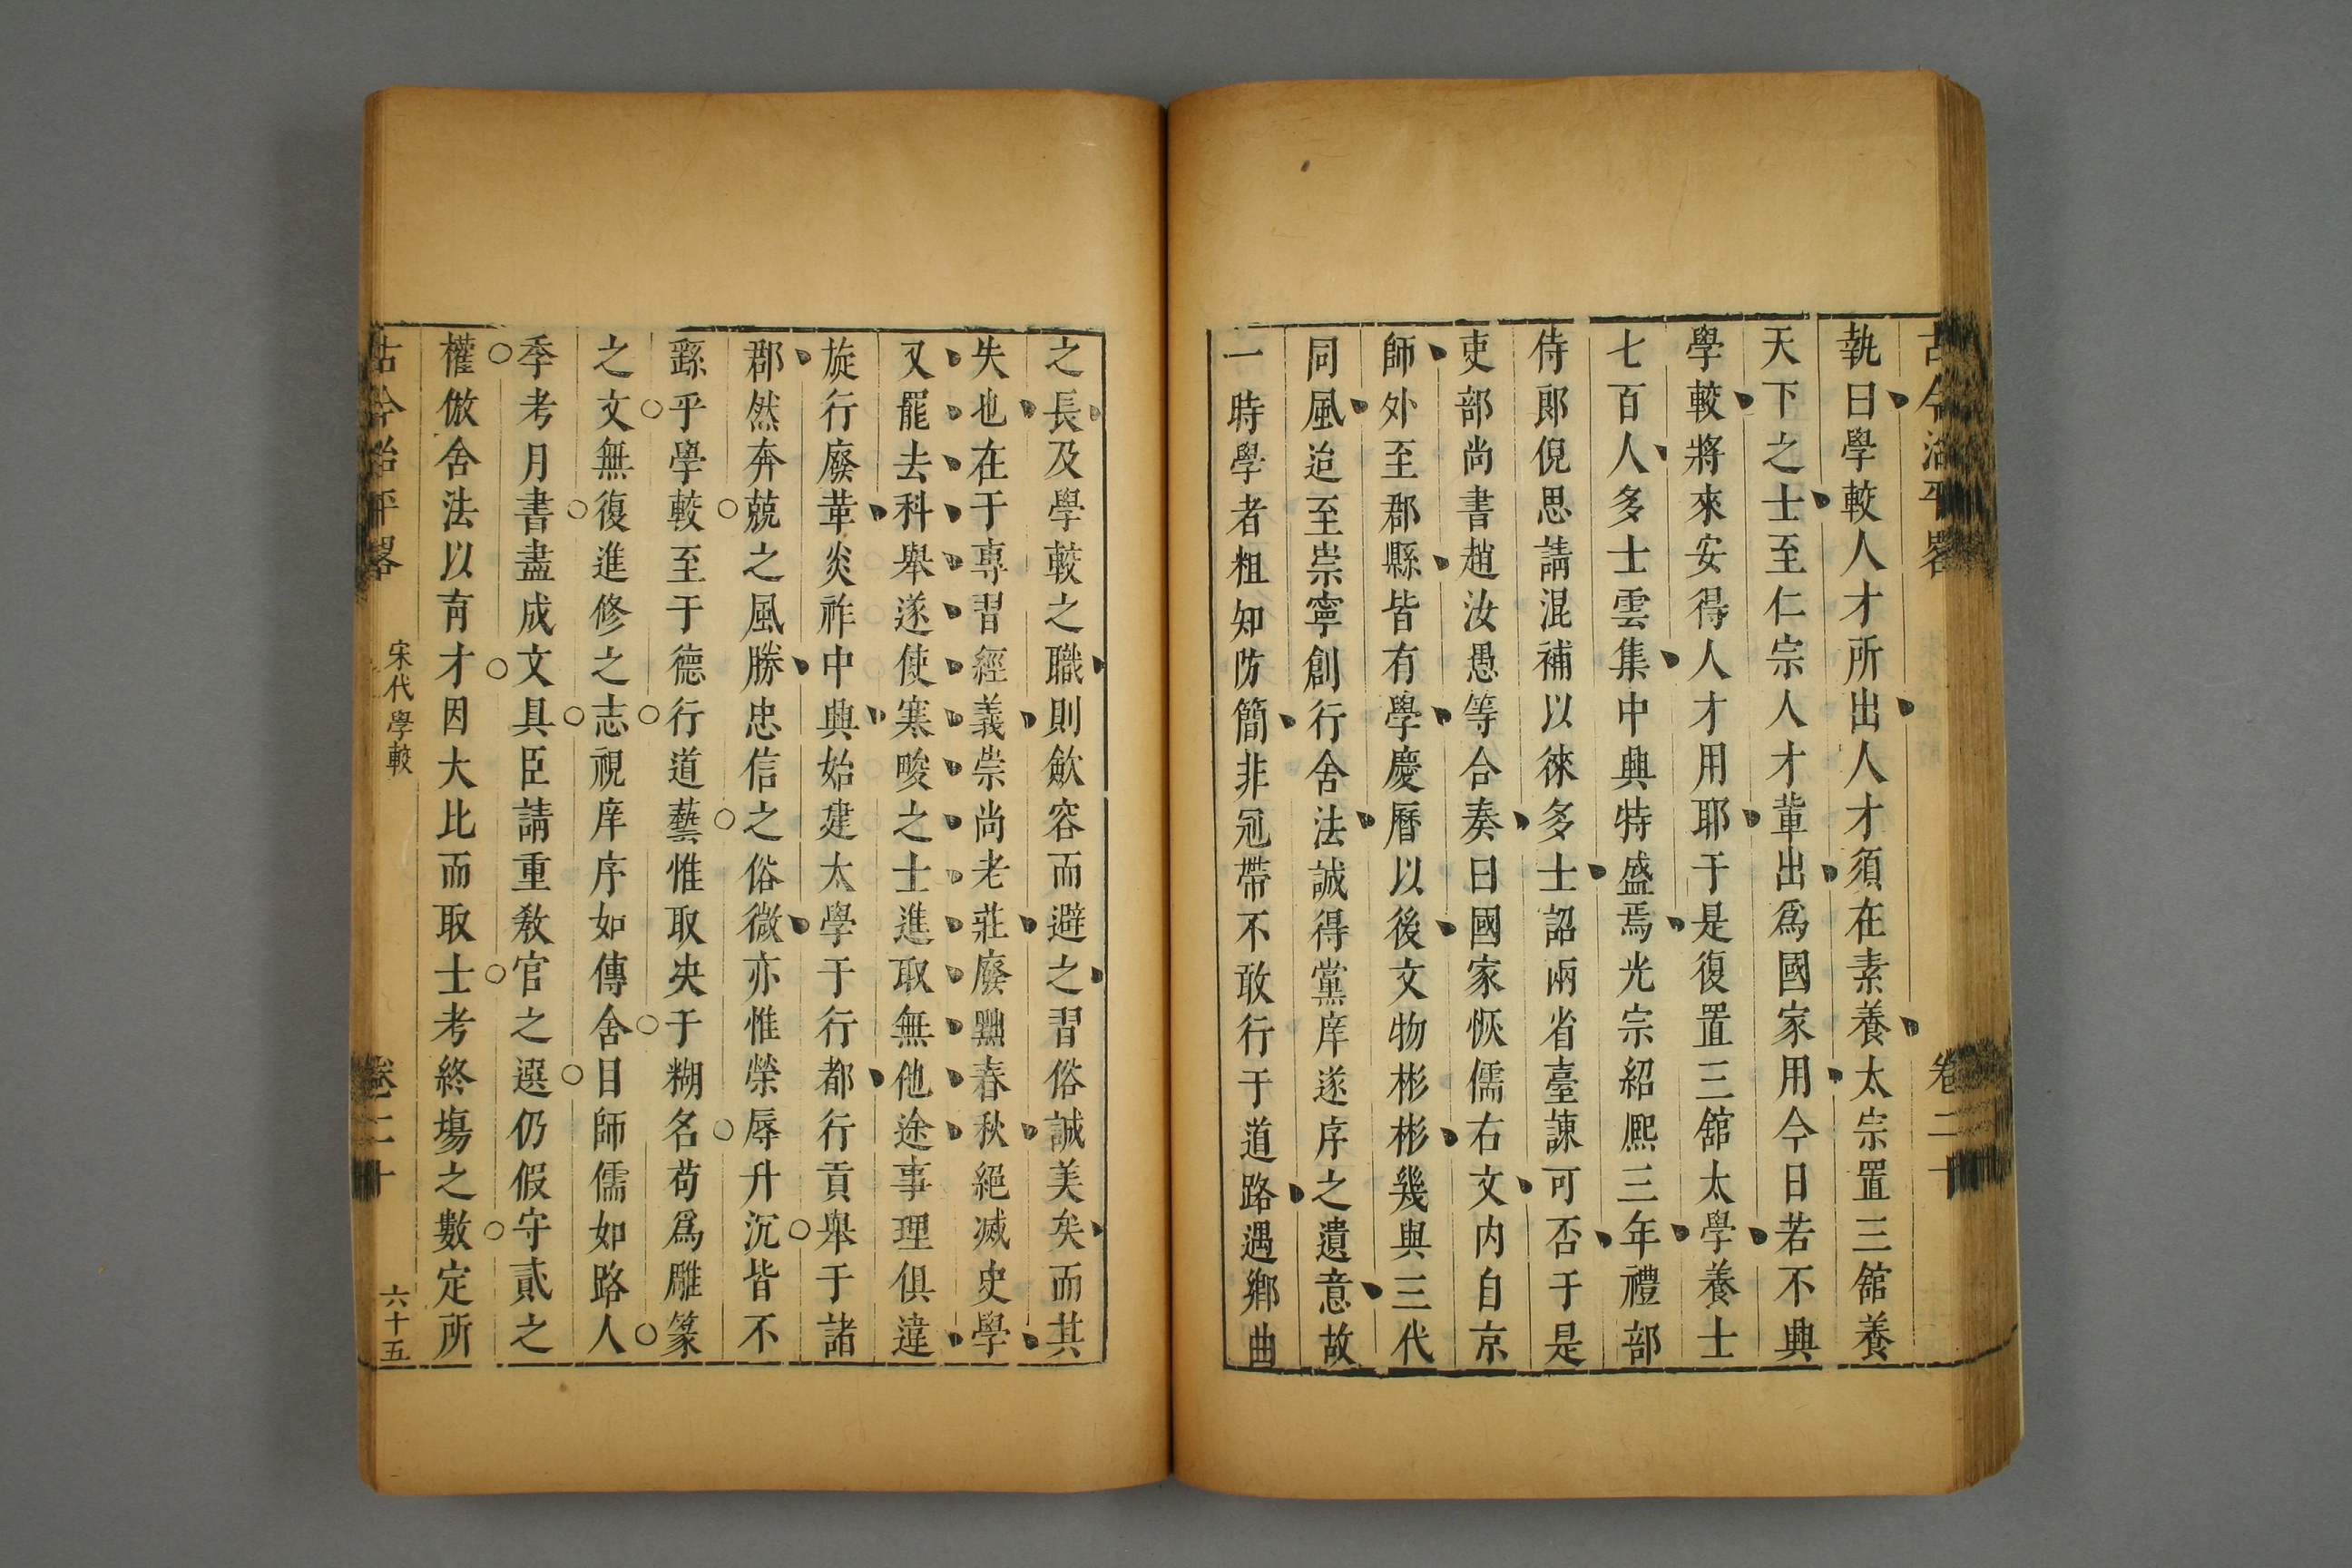 古今治平畧 卷二十
執曰學較人才所出人才須在素養太宗置三舘養
天下之士至仁宗人才軰出爲國家用今日若不興
學較將來安得人才用耶于是復置三舘太學養士
七百人多士雲集中興特盛焉光宗紹熈三年禮部
侍郎倪思請混補以徠多士詔兩省臺諫可否于是
吏部尚書趙汝愚等合奏曰國家恢儒右文内自京
師外至郡縣皆有學慶曆以後文物彬彬幾與三代
同風迨至崇寧創行舍法誠得黨庠遂序之遺意故
一時學者粗知防簡非冠帶不敢行于道路遇鄉曲
之長及學較之職則歛容而避之習俗誠美矣而其
失也在于專習經義崇尚老莊廢黜春秋絕滅史學
又罷去科舉遂使寒畯之士進取無他途事理俱違
旋行廢革炎祚中興始建太學于行都行貢舉于諸
郡然奔兢之風勝忠信之俗微亦惟榮辱升沉皆不
繇乎學較至于德行道藝惟取决于糊名苟爲雕篆
之文無復進修之志視庠序如傳舍目師儒如路人
季考月書盡成文具臣請重教官之選仍假守貳之
權倣舍法以育才因大比而取士考終塲之數定所
古今治平畧 宋代學較 卷二十 六十五